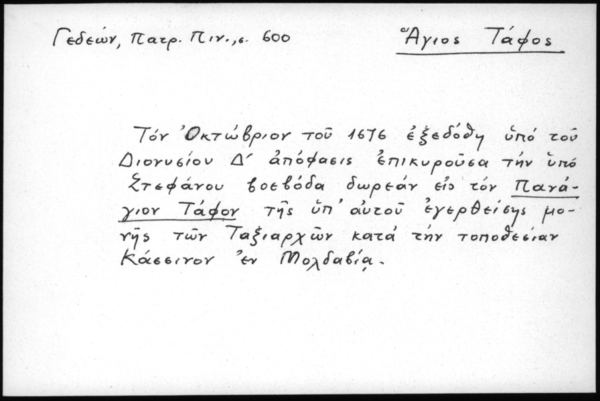 Γεδεών, Πατρ. Πιν., σ. 600
Ἅγιος Τάφος
Τόν Ὀκτώβριον τοῦ 1676 ἐξεδόθη ὑπό τοῦ
Διονυσίου Δ' ἀπόφασις ἐπικυροῦσα τήν ὑπό
Στεφάνου βοεβόδα δωρεάν εἰς τόν Πανά-
γιον Τάφον τῆς ὑπ' αὐτοῦ ἐγερθείσης μο-
νῆς τῶν Ταξιαρχῶν κατά τήν τοποθεσίαν
Κάσσινον ἐν Μολδαβίᾳ.